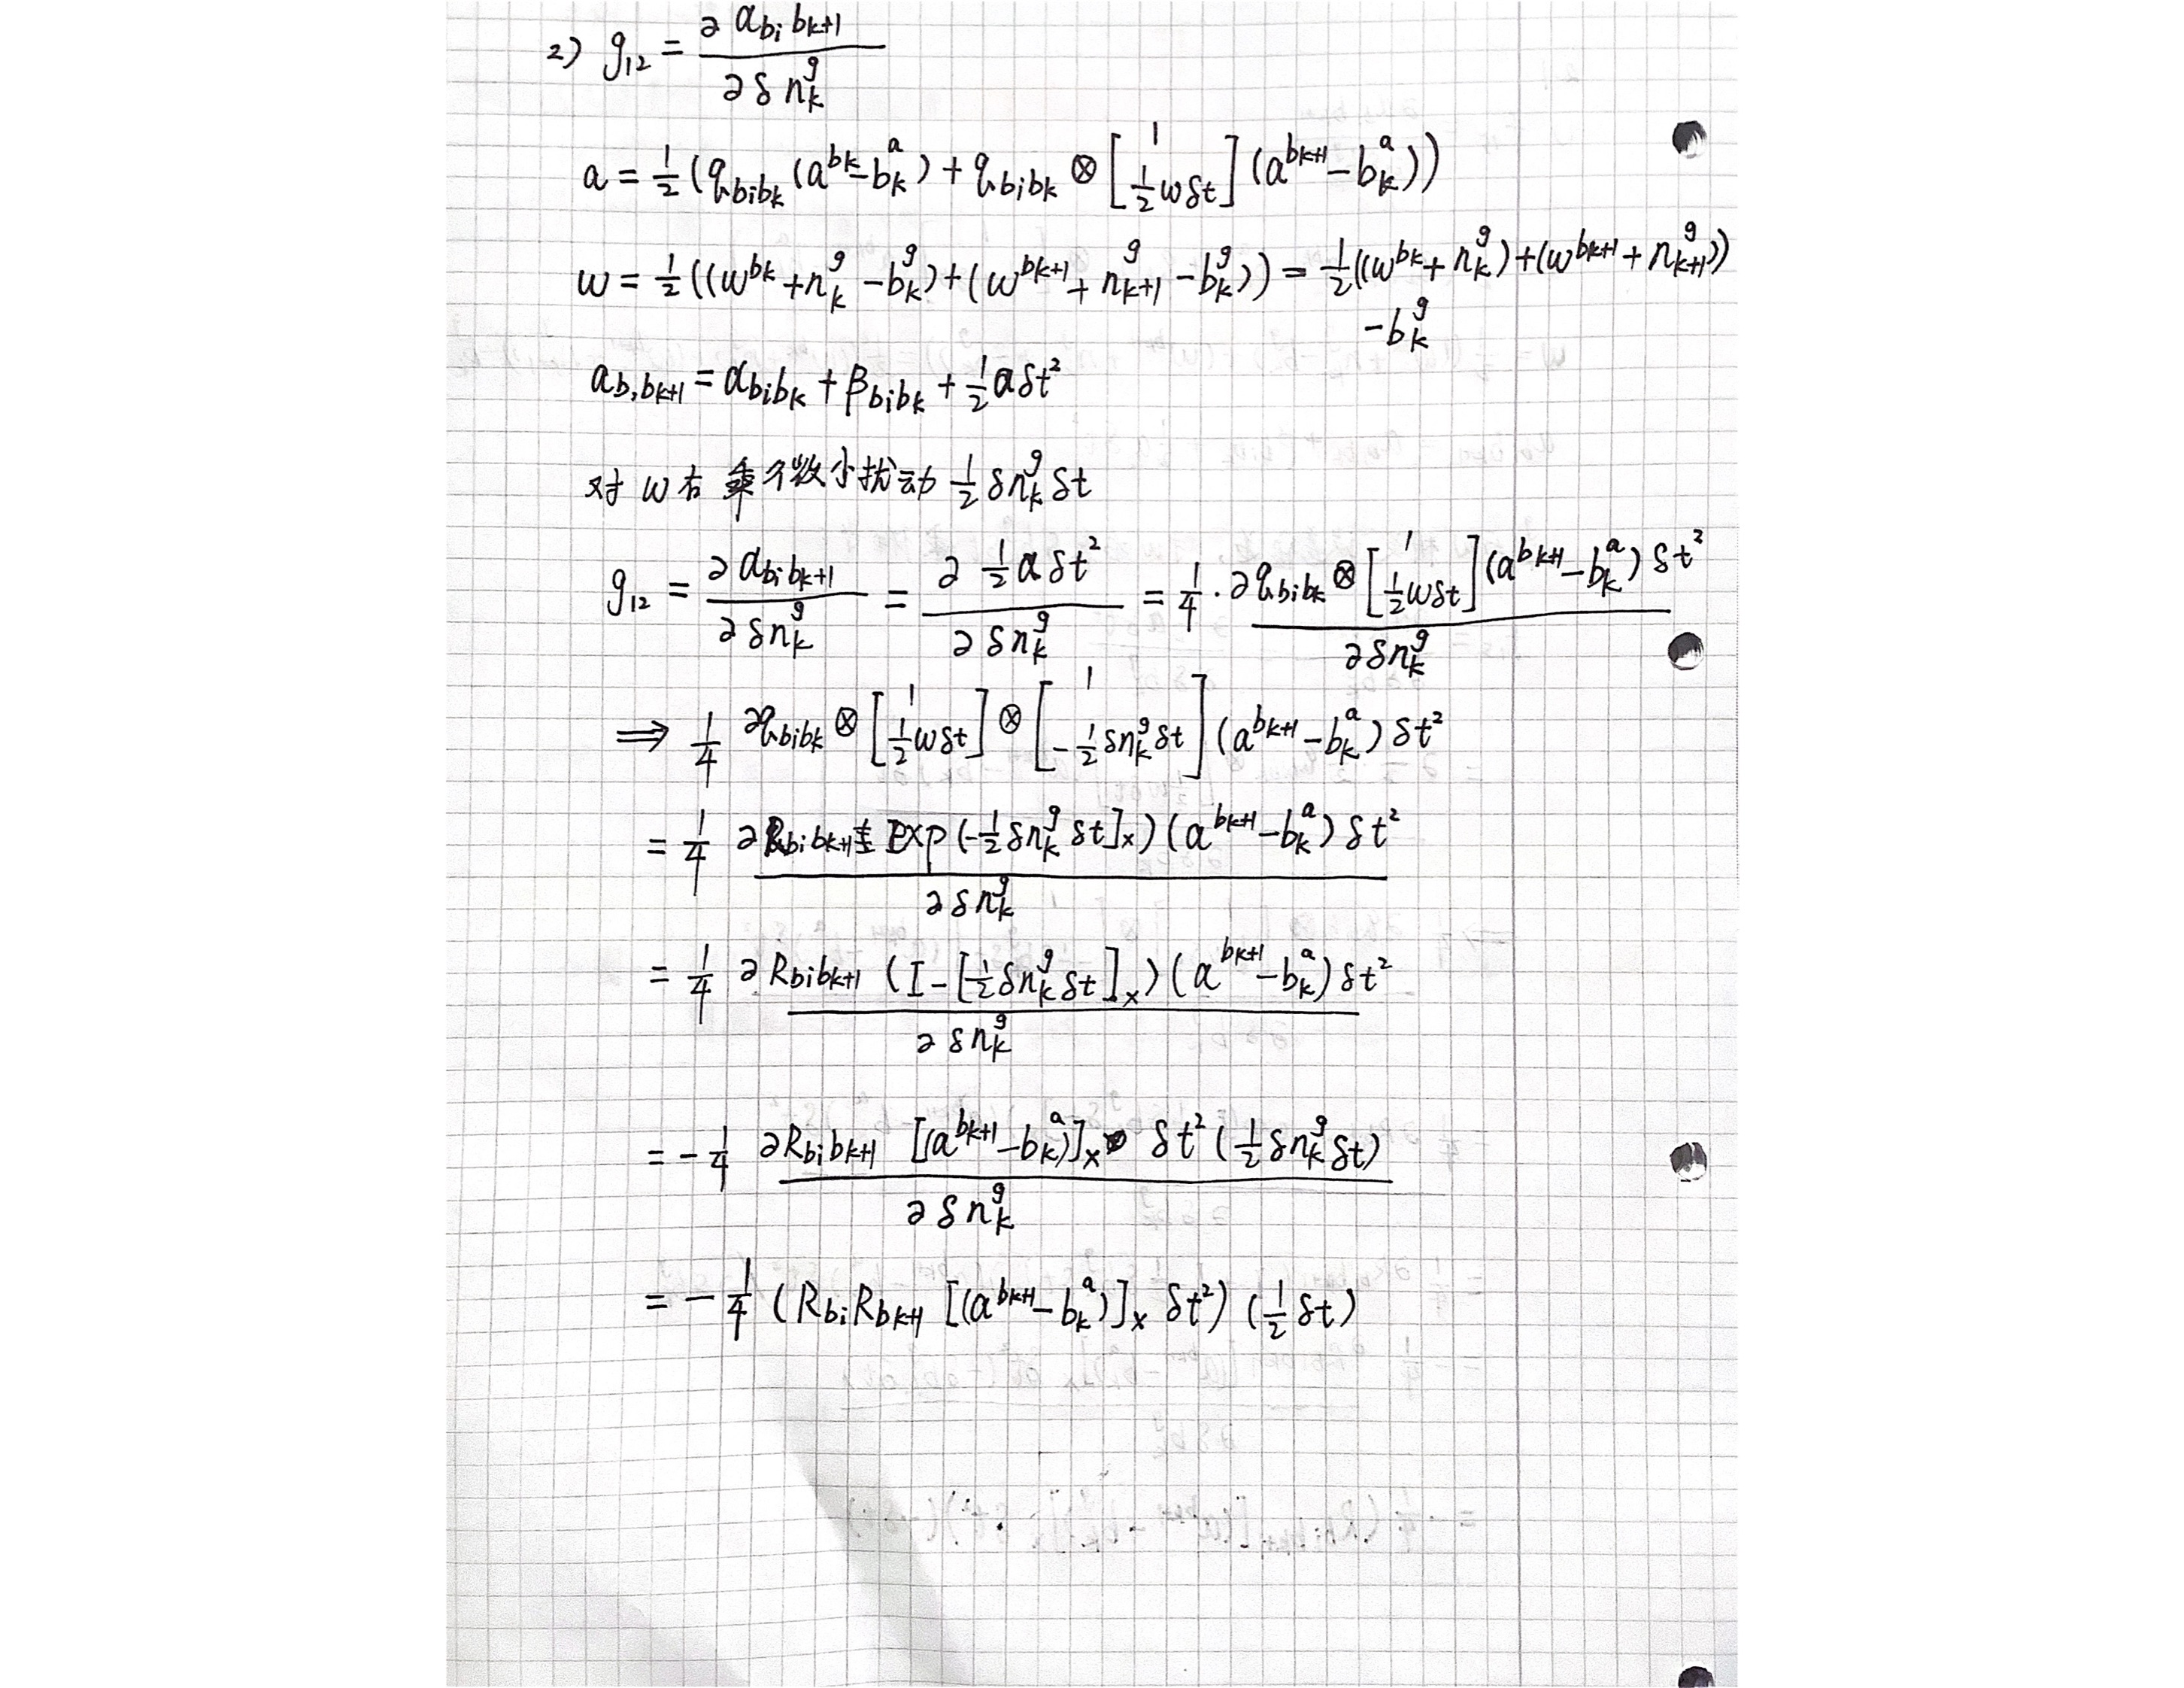 2) g₁₂ = ∂α_{b_i b_{k+1}} / ∂δn_k^g
a = 1/2 (q_{b_i b_k} (a^{b_k} - b_k^a) + q_{b_i b_k} ⊗ [1; 1/2 ωδt] (a^{b_{k+1}} - b_k^a))
ω = 1/2 ((ω^{b_k} + n_k^g - b_k^g) + (ω^{b_{k+1}} + n_{k+1}^g - b_k^g)) = 1/2 ((ω^{b_k} + n_k^g) + (ω^{b_{k+1}} + n_{k+1}^g))
- b_k^g
a_{b_i b_{k+1}} = α_{b_i b_k} + β_{b_i b_k} + 1/2 a δt²
对 ω 右乘 个微小扰动 1/2 δn_k^g δt
g₁₂ = ∂α_{b_i b_{k+1}} / ∂δn_k^g = ∂ 1/2 a δt² / ∂δn_k^g = 1/4 · ∂q_{b_i b_k} ⊗ [1; 1/2 ωδt] (a^{b_{k+1}} - b_k^a) δt² / ∂δn_k^g
⇒ 1/4 ∂q_{b_i b_k} ⊗ [1; 1/2 ωδt] ⊗ [1; -1/2 δn_k^g δt] (a^{b_{k+1}} - b_k^a) δt²
= 1/4 ∂R_{b_i b_{k+1}} exp(-1/2 δn_k^g δt]ₓ) (a^{b_{k+1}} - b_k^a) δt² / ∂δn_k^g
= 1/4 ∂R_{b_i b_{k+1}} (I - [1/2 δn_k^g δt]ₓ) (a^{b_{k+1}} - b_k^a) δt² / ∂δn_k^g
= - 1/4 ∂R_{b_i b_{k+1}} [(a^{b_{k+1}} - b_k^a)]ₓ δt² (1/2 δn_k^g δt) / ∂δn_k^g
= - 1/4 (R_{b_i} R_{b_{k+1}} [(a^{b_{k+1}} - b_k^a)]ₓ δt²) (1/2 δt)